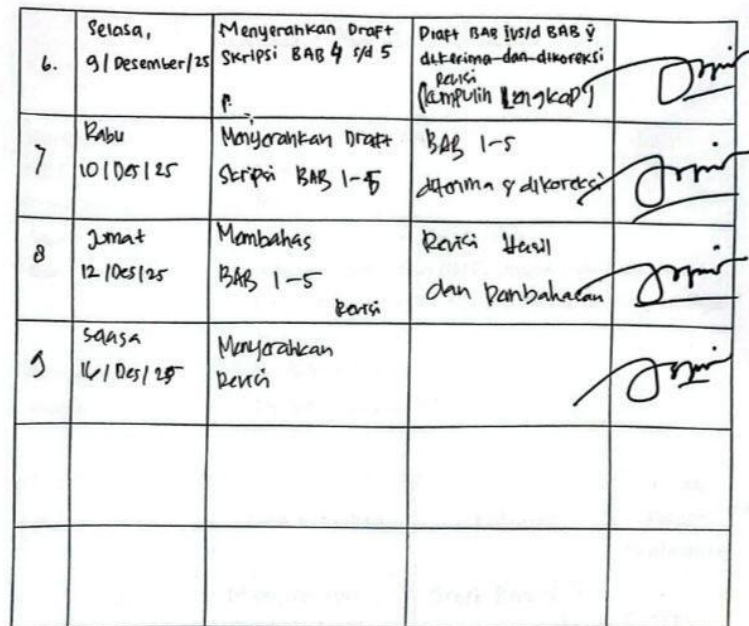 6.
Selasa,
9/Desember/25
Menyerahkan Draft
Skripsi BAB 4 s/d 5
P.
Draft BAB IV s/d BAB V
diterima dan dikoreksi
Revisi
(kumpulin Lengkap)
7
Rabu
10/Des/25
Menyerahkan Draft
Skripsi BAB 1-5
BAB 1-5
diterima & dikoreksi
8
Jumat
12/Des/25
Membahas
BAB 1-5
Revisi
Revisi Hasil
dan Pembahasan
9
Selasa
16/Des/25
Menyerahkan
Revisi